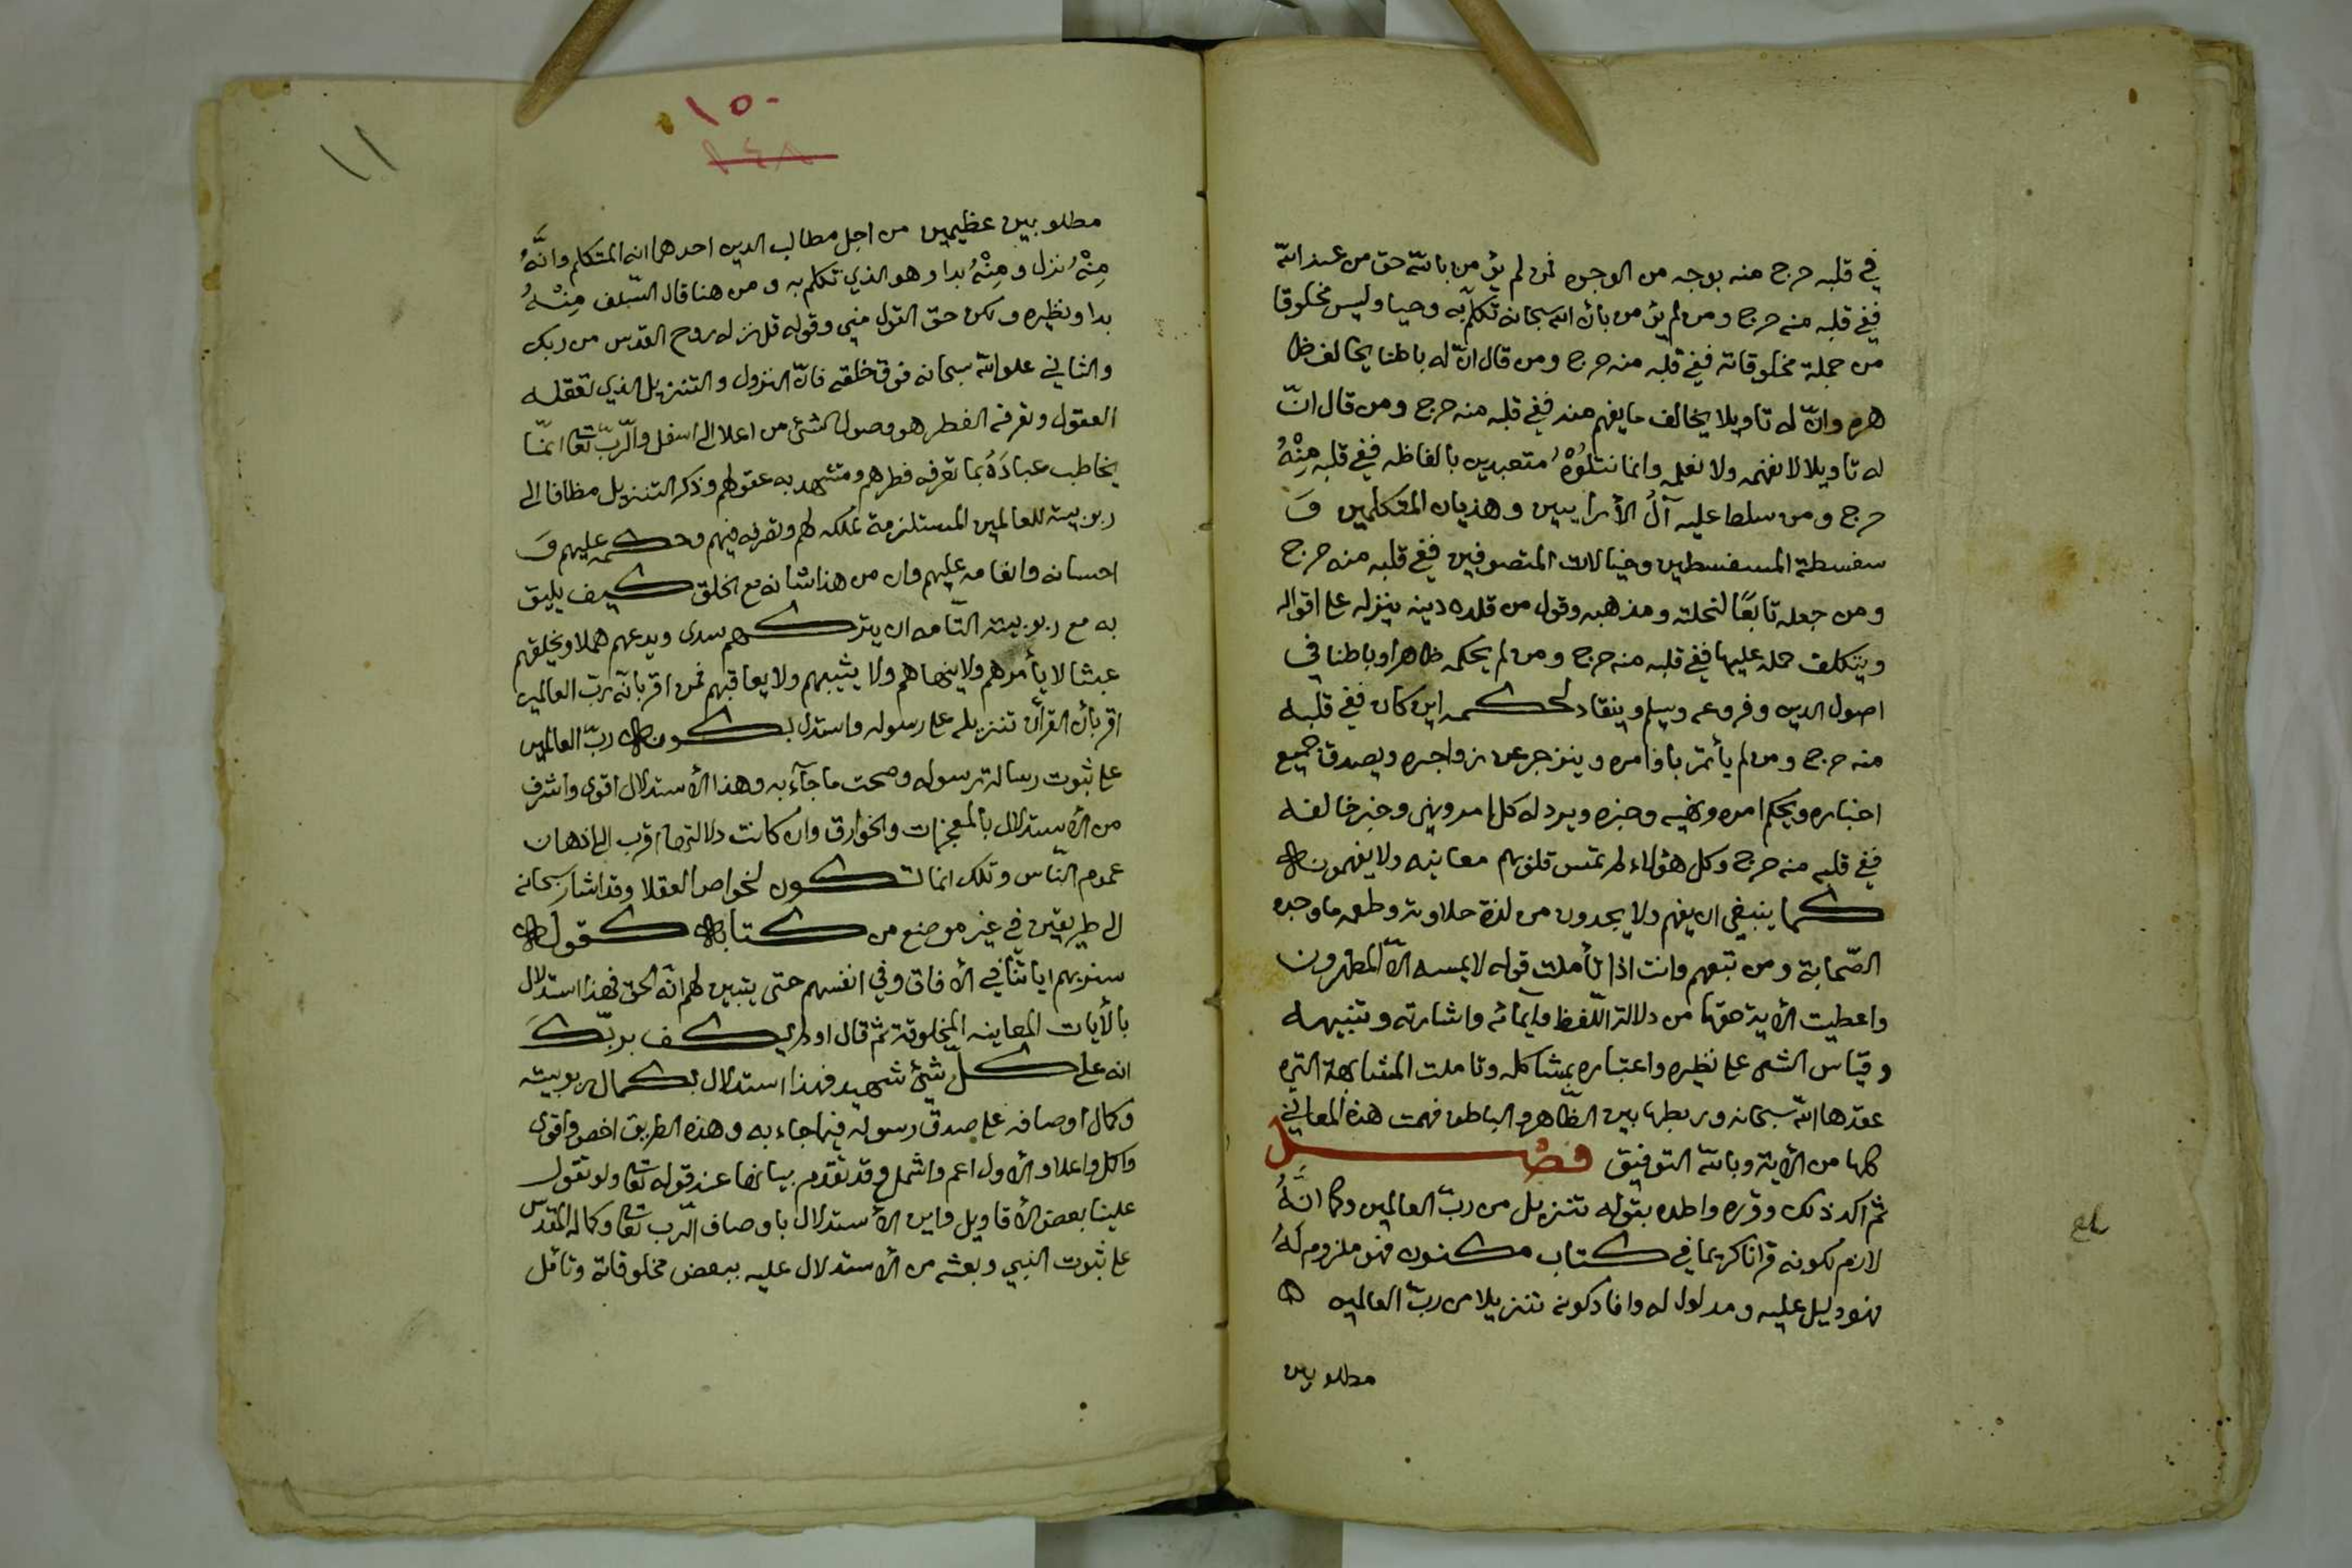 في قلبه حرج منه بوجه من الوجوه فمن لم يؤمن بانه حق من عند الله
ففي قلبه منه حرج ومن لم يؤمن بان الله سبحانه تكلم به وحيا وليس مخلوقا
من جملة مخلوقاته ففي قلبه منه حرج ومن قال انّ له باطنا يخالف ظا
هره وانّ له تاويلا يخالف ما يفهم منه ففي قلبه منه حرج ومن قال انّ
له تاويلا لا نفهمه ولا نعلمه وانما نتلُوْهُ متعبدين بالفاظه ففي قلبه مِنْهُ
حرج ومن سلط عليه آلُ الأرايبين وهذيان المتكلمين وَ
سفسطة المسفسطين وخيالات المتصوفين ففي قلبه منه حرج
ومن جعله تابعًا لنحلته ومذهبه وقول من قلده دينه ينزله على اقواله
ويتكلف حمله عليها ففي قلبه منه حرج ومن لم يحكمه ظاهرا وباطنا في
اصول الدين وفروعه ويسلم وينقاد لحكمه اين كان ففي قلبه
منه حرج ومن لم يأتمر باوامره وينزجر عن زواجره ويصدق جميع
اخباره ويحكم امره ونهيه وخبره ويرد له كل امر ونهي وخبر خالفه
ففي قلبه منه حرج وكل هؤلاء لم تمس قلوبهم معانيه ولا يفهمونه
كما ينبغي ان يفهم ولا يجدون من لذة حلاوته وطعمه ما وجده
الصّحابة ومن تبعهم وانت اذا تأملت قوله لا يمسه الّا المطهرون
واعطيت الأية حقها من دلالة اللّفظ وايمائه واشارته وتنبيهه
وقياس الشى على نظيره واعتباره بمشاكله وتاملت المشابهة التي
عقدها الله سبحانه وربطها بين الظّاهر والباطن فهمت هذه المعاني
كلها من الأية وبالله التوفيق فصْل
ثم اكد ذلك وقرره واطده بقوله تنزيل من ربّ العالمين وكما انَّهُ
لازم لكونه قرانا كريما في كتاب مكنون فهو ملزوم لهُ
فهو دليل عليه ومدلول له وافاد كونه تنزيلا من ربّ العالمين
مطلوبين
١٥٠
١٤٨
١١
مطلوبين عظيمين من اجل مطالب الدين احدهما انه المتكلم وانَّهُ
مِنْهُ نزل ومِنْهُ بدا وهو الذي تكلم به ومن هنا قال السّلف مِنْهُ
بدا ونظيره ولكن حق القول مني وقوله قل نزله روح القدس من ربك
والثاني علو الله سبحانه فوق خلقه فانّ النزول والتنزيل الذي تعقله
العقول وتعرفه الفطر هو وصول الشئ من اعلا الى اسفل والرّبّ تعا انمّا
يخاطب عبادَهُ بما تعرفه فطرهم وتشهد به عقولهم وذكر التنزيل مظافا الى
ربوبيته للعالمين المستلزمة لملكه لهم وتصرفه فيهم وحكمه عليهم وَ
احسانه وانعامه عليهم وان من هذا شانه مع الخلق كيف يليق
به مع ربوبيته التّامه ان يتركهم سدى ويدعهم هملا ويخلقهم
عبثا لا يأمرهم ولا ينهاهم ولا يثيبهم ولا يعاقبهم فمن اقر بانّه ربّ العالمين
اقر بأن القرأن تنزيله على رسوله واستدل بكونه ربّ العالمين
على ثبوت رسالة رسوله وصحت ما جآء به وهذا الأستدلال اقوى واشرف
من الأستدلال بالمعجزات والخوارق وان كانت دلالتها اقرب الى اذهان
عموم النّاس وتلك انما تكون لخواص العقلا وقد اشار سبحانه
الى طريقين في غير موضع من كتابه كقوله
سنريهم اياتنا في الأفاق وفي انفسهم حتى يتبين لهم انّه الحق فهذا استدلال
بالأيات المعاينه المخلوقة ثم قال اولم يكف بربّكَ
انه على كلّ شئ شهيد فهذا استدلال بكمال ربوبيته
وكمال اوصافه على صدق رسوله فيما جاء به وهذه الطريق اخص واقوى
واكل واعلا والأول اعم واشمل وقد تقدم بيانها عند قوله تعا ولو تقول
علينا بعض الأقاويل واين الأستدلال باوصاف الرّب تعا وكماله المقدس
على ثبوت النبي وبعثه من الأستدلال عليه ببعض مخلوقاته وتأمل